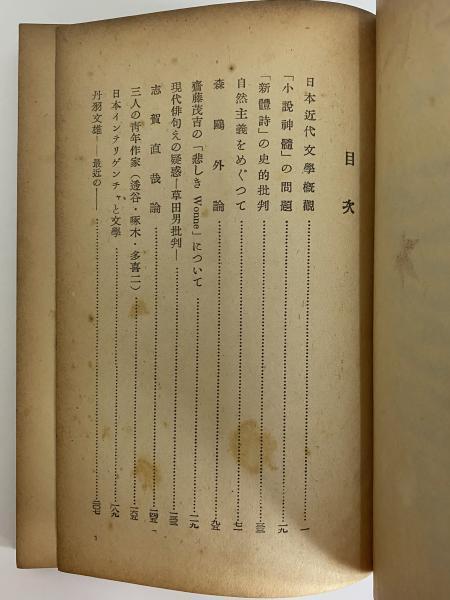 目次
日本近代文學概觀……一
「小說神髓」の問題……一九
「新體詩」の史的批判……三三
自然主義をめぐつて……七一
森鷗外論……九五
齋藤茂吉の「悲しき Wonne」について……一一九
現代俳句えの疑惑―草田男批判―……一三三
志賀直哉論……一四五
三人の靑年作家(透谷・啄木・多喜二)……一六五
日本インテリゲンチャと文學……一八九
丹羽文雄―最近の―……二〇七